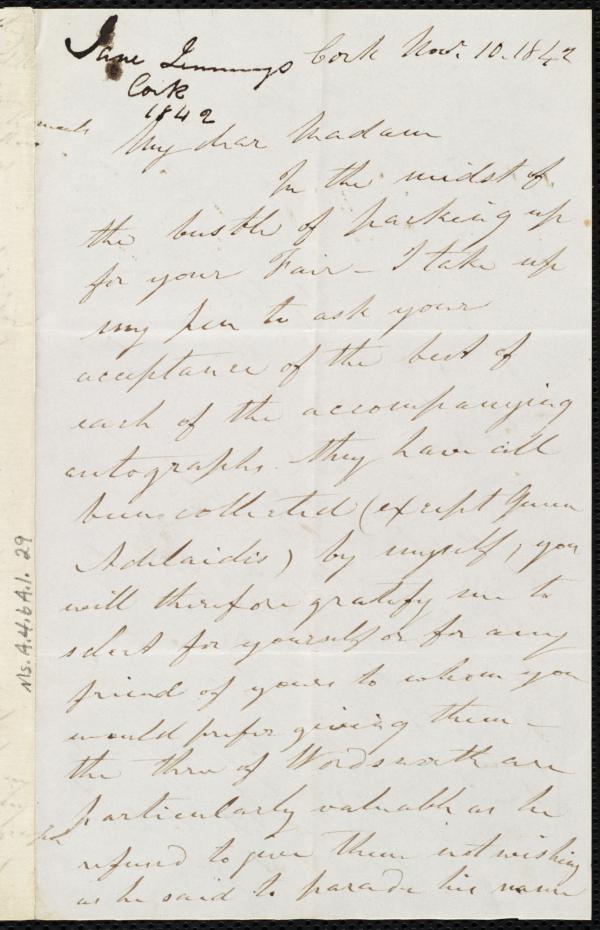 Jane Jennings
Cork
1842
Cork Nov. 10. 1842
My dear Madam
In the midst of
the bustle of packing up
for your Fair – I take up
my pen to ask your
acceptance of the best of
each of the accompanying
autographs. They have all
been collected (except Queen
Adelaide's) by myself, you
will therefore gratify me to
select for yourself or for any
friend of yours to whom you
would prefer giving them –
the three of Wordsworth are
particularly valuable as he
refused to give them not wishing
as he said to parade his name
Ms. A.4.6A.1. 29